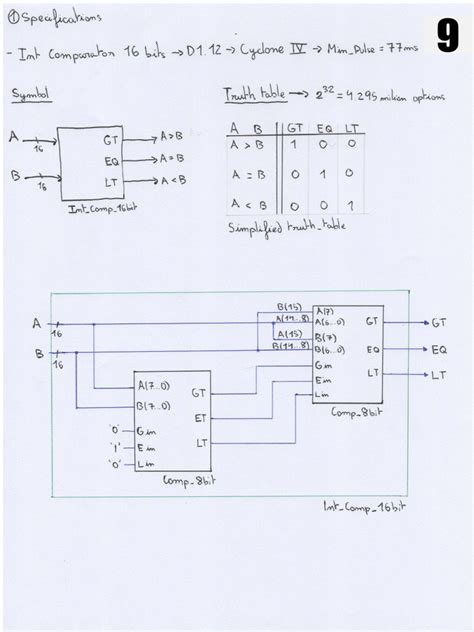 ① Specifications
9
- Int Comparator 16 bits → D1.12 → Cyclone IV → Min_Pulse = 77ns
Symbol
Truth table → 2^32 = 4.295 milion options
A
16
B
16
GT
EQ
LT
A > B
A = B
A < B
Int_Comp_16bit
A B GT EQ LT
A > B 1 0 0
A = B 0 1 0
A < B 0 0 1
Simplified truth_table
A
16
B
16
B(15)
A(14..8)
A(15)
B(14..8)
A(7)
A(6..0)
B(7)
B(6..0)
Gin
Ein
Lin
GT
EQ
LT
Comp_8bit
GT
EQ
LT
A(7..0)
B(7..0)
'0' Gin
'1' Ein
'0' Lin
GT
ET
LT
Comp_8bit
Int_Comp_16bit